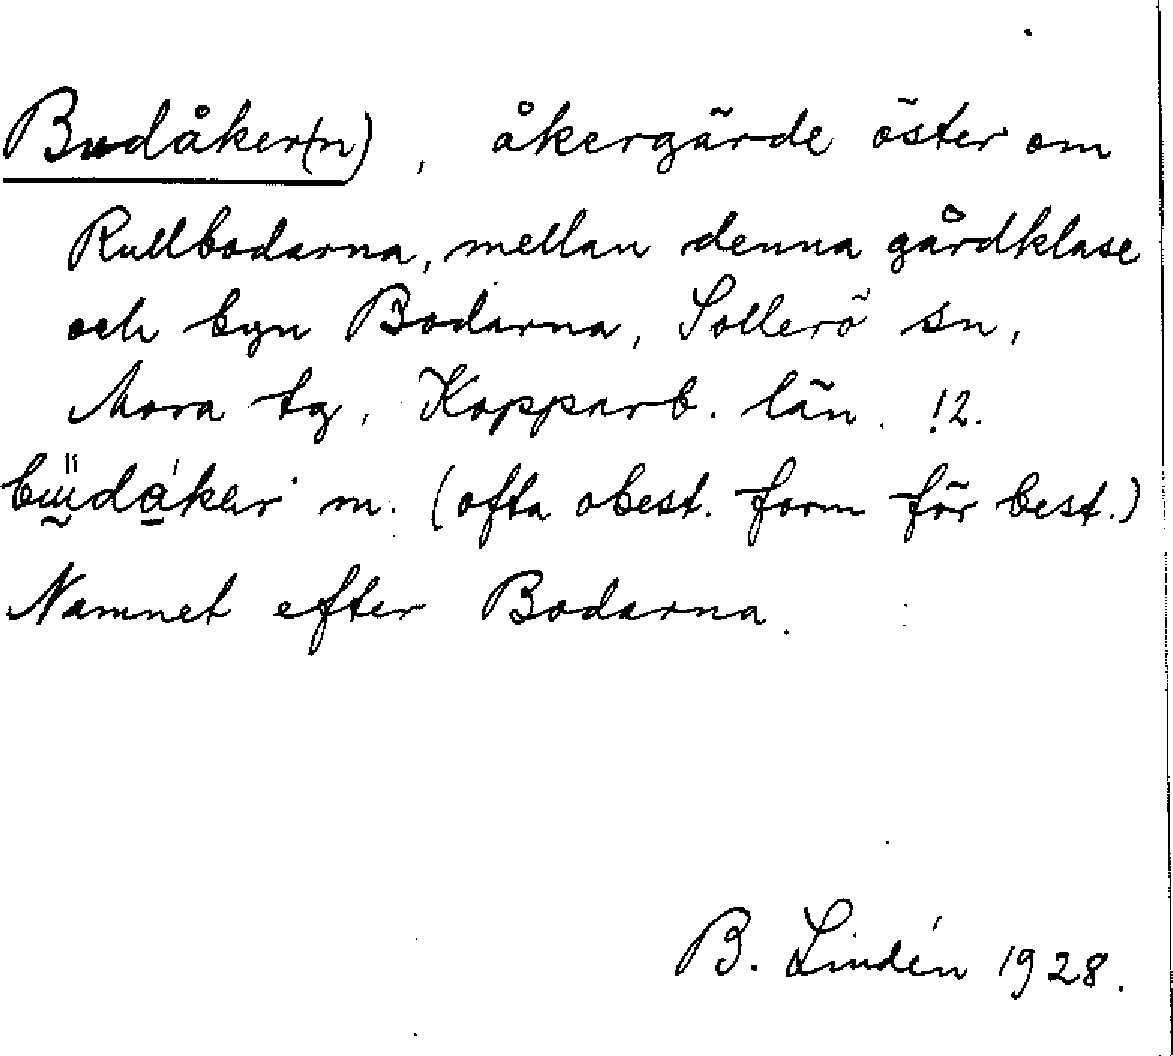 Budåker(n), åkergärde öster om
Rullbodarna, mellan denna gårdklase
och byn Bodarna, Sollerö sn,
Mora tg, Kopparb. län. !2.
m. (ofta obest. form för best.)
Namnet efter Bodarna.
B. Lindén 1928.